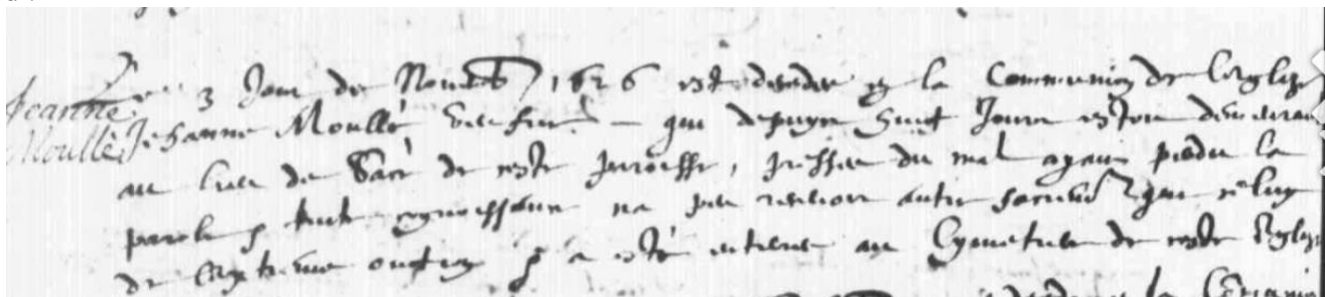 Jeanne Moullé
Le 3 Jour de Novemb 1626 est decedee en la Communion de leglize
Jehanne Moullé veufve – qui depuys huit Jours estoit demeurante
au lieu de Sacé de ceste parroisse, pressee du mal ayant perdu la
parole et toute cognoissance na peu recevoir autre sacrement que celuy
de lextreme onction et a esté enterree au Cymetiere de ceste Eglize